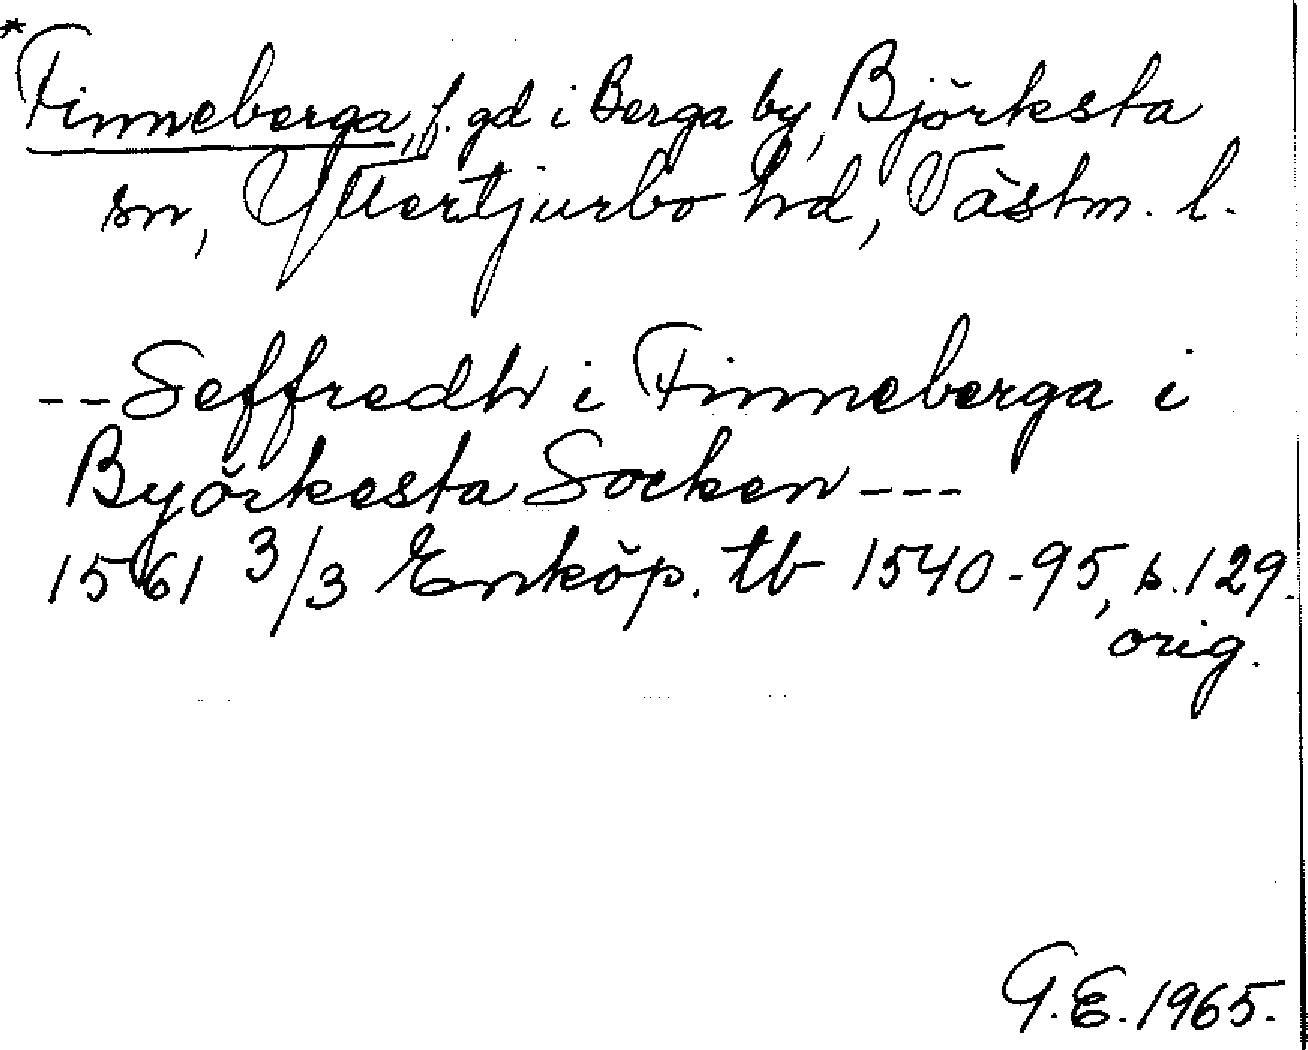 *Finneberga, f. gd i Berga by, Björksta
sn, Yttertjurbo hd, Västm. l.
--Seffredh i Finneberga i
Byörkesta Socken ---
1561 3/3 Enköp. tb 1540-95, s. 129.
orig.
G.E. 1965.